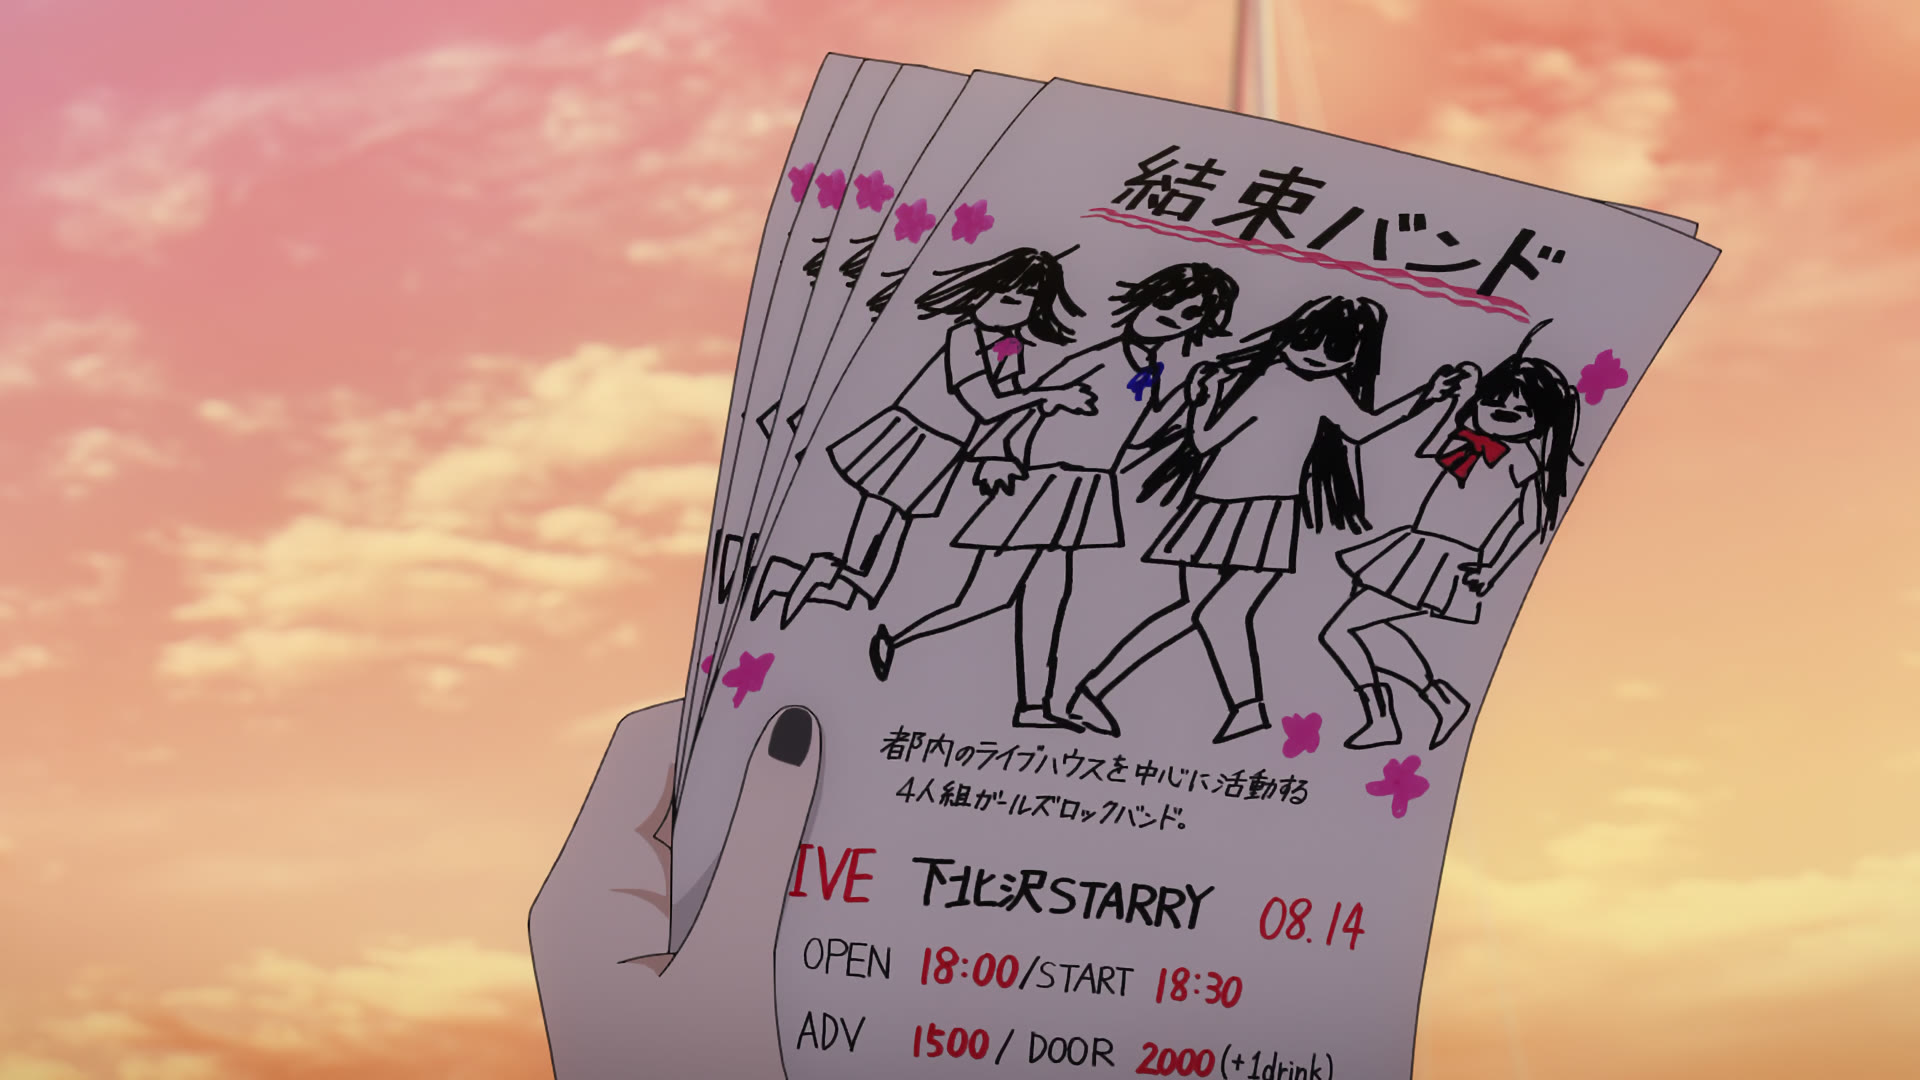 結束バンド
都内のライブハウスを中心に活動する
4人組ガールズロックバンド。
IVE 下北沢STARRY 08.14
OPEN 18:00/START 18:30
ADV 1500/DOOR 2000(+1drink)